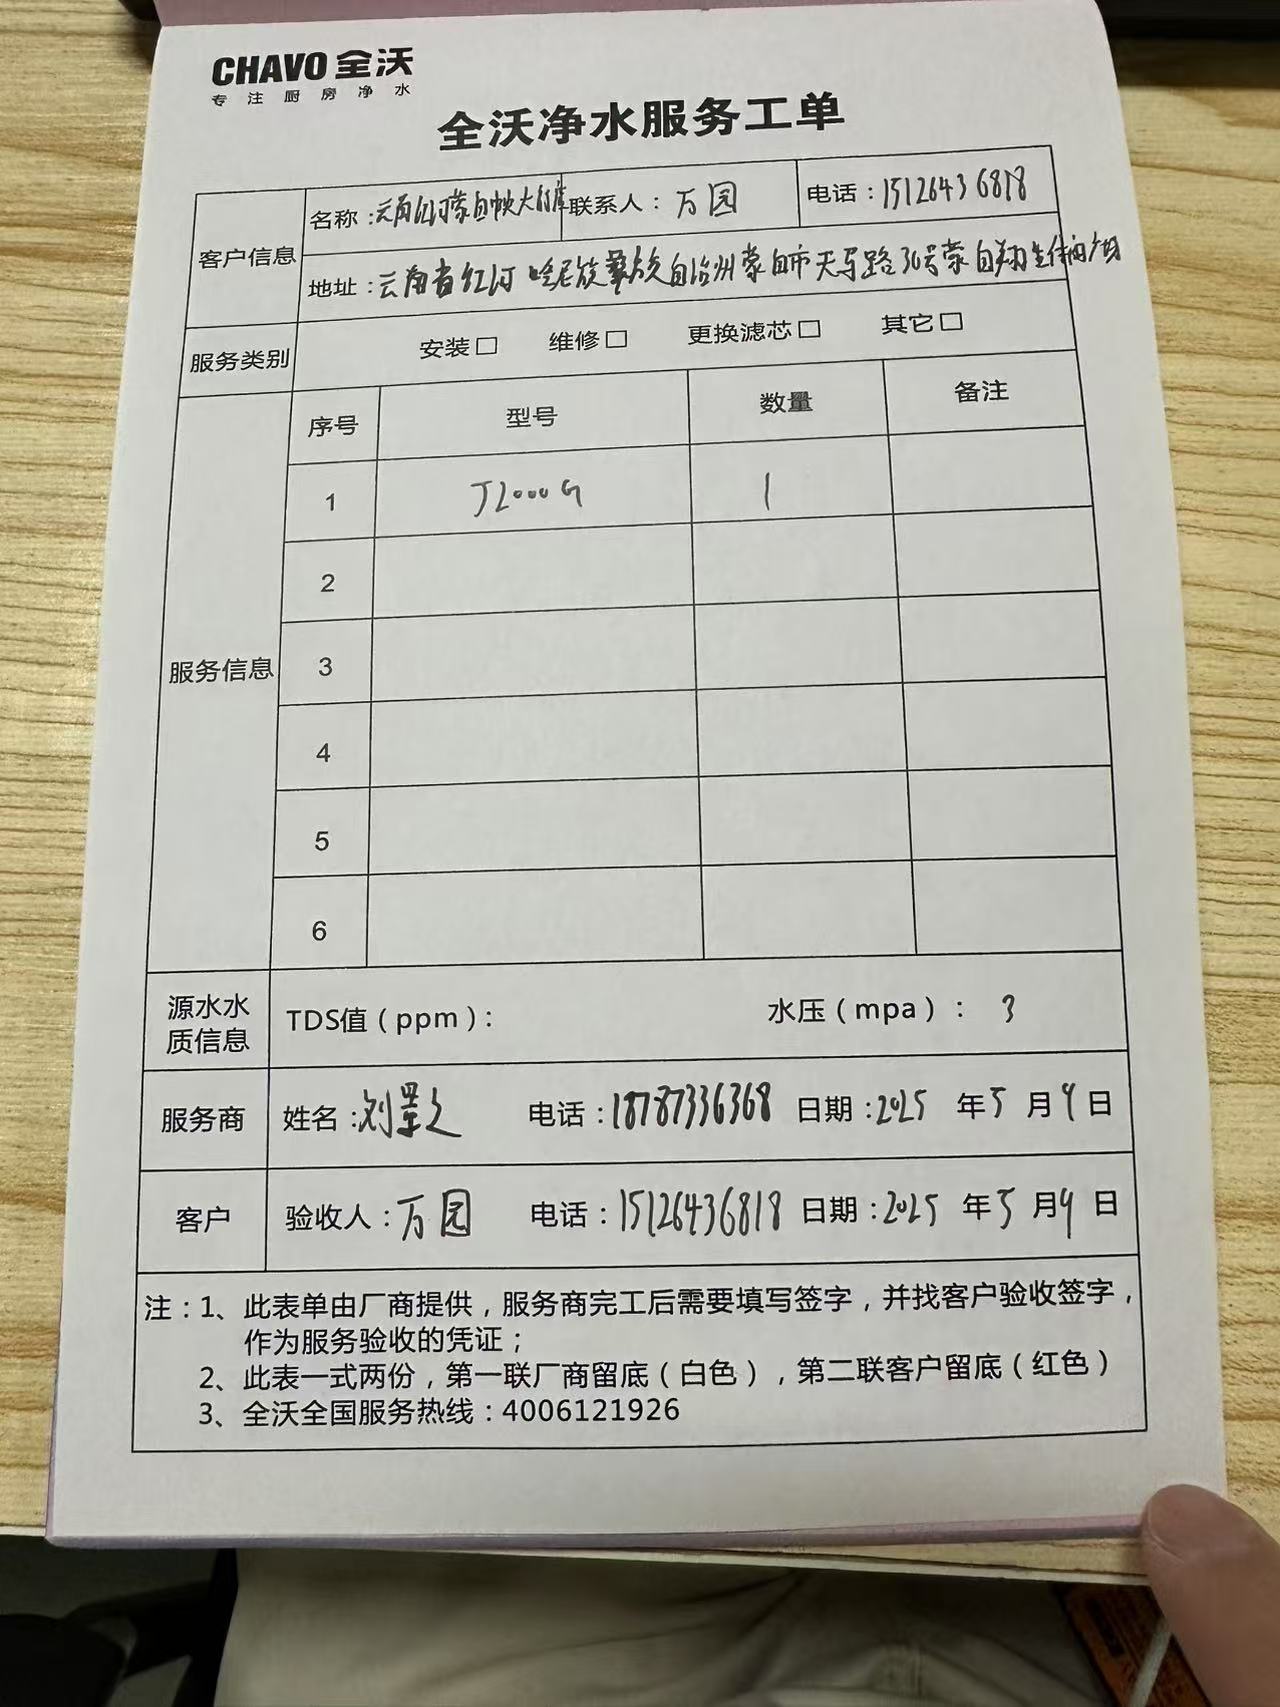 CHAVO 全沃
专注厨房净水
全沃净水服务工单
客户信息
名称：云南红河蒙自 联系人：万园 电话：15126436818
地址：云南省红河哈尼族彝族自治州蒙自市天马路36号蒙自
服务类别 安装□ 维修□ 更换滤芯□ 其它□
服务信息
序号 型号 数量 备注
1 J2000G 1
2
3
4
5
6
源水水质信息 TDS值（ppm）： 水压（mpa）： 3
服务商 姓名：刘 电话：18787336368 日期：2025 年 5 月 9 日
客户 验收人：万园 电话：15126436818 日期：2025 年 5 月 9 日
注：1、此表单由厂商提供，服务商完工后需要填写签字，并找客户验收签字，
作为服务验收的凭证；
2、此表一式两份，第一联厂商留底（白色），第二联客户留底（红色）
3、全沃全国服务热线：4006121926